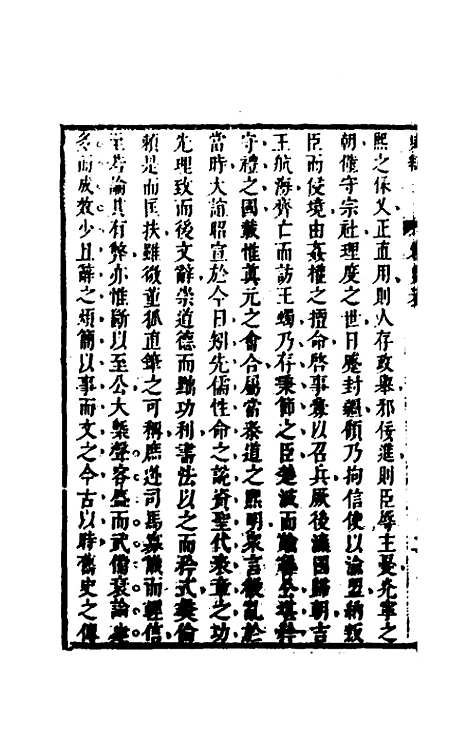 熙之休又正直用則人存政舉邪佞進則臣辱主憂光寧之
朝僅守宗社理度之世日蹙封疆顧乃拘信使以渝盟納叛
臣而侵境由姦權之擅命啓事釁以召兵厥後瀛國歸朝吉
王航海齊亡而訪王蠋乃存秉節之臣楚滅而諭魯公堪矜
守禮之國載惟眞元之會合屬當泰道之熙明衆言淆亂於
當時大誼昭宣於今日矧先儒性命之說資聖代表章之功
先理致而後文辭崇道德而黜功利書法以之而矜式彝倫
賴是而匡扶雖微董狐直筆之可稱庶逃司馬
而輕信
至若論其有弊亦惟斷以至公大槩聲容盛而武備衰論建
多而成效少且辭之煩簡以事而文之今古以時舊史之傳